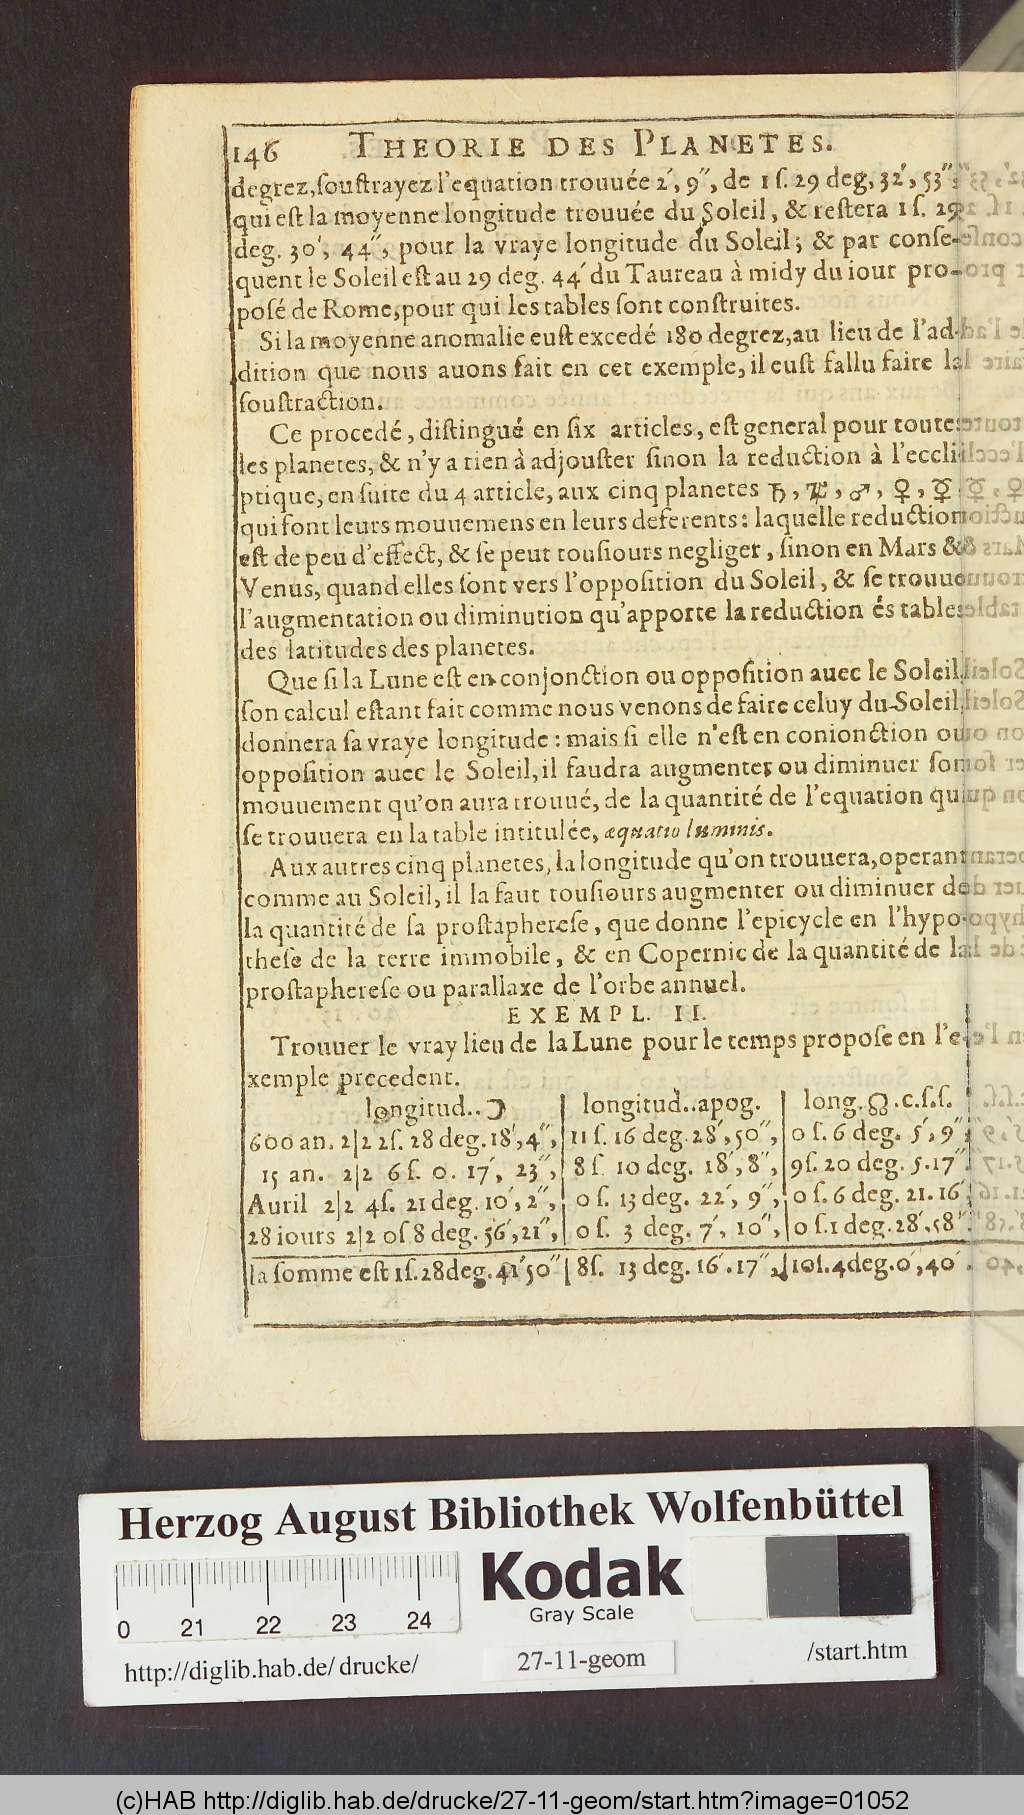 146 THEORIE DES PLANETES.
degrez, ſouſtrayez l'equation trouuée 2′, 9″, de 1 ſ. 29 deg, 32′, 53″,
qui eſt la moyenne longitude trouuée du Soleil, & reſtera 1 ſ. 29
deg. 30′, 44″, pour la vraye longitude du Soleil; & par conſe-
quent le Soleil eſt au 29 deg. 44′ du Taureau à midy du iour pro-
poſé de Rome, pour qui les tables ſont conſtruites.
Si la moyenne anomalie euſt excedé 180 degrez, au lieu de l'ad-
dition que nous auons fait en cet exemple, il euſt fallu faire la
ſouſtraction.
Ce procedé, diſtingué en ſix articles, eſt general pour toutes
les planetes, & n'y a rien à adjouſter ſinon la reduction à l'eccli-
ptique, en ſuite du 4 article, aux cinq planetes ♄, ♃, ♂, ♀, ☿
qui font leurs mouuemens en leurs deferents: laquelle reduction
eſt de peu d'effect, & ſe peut touſiours negliger, ſinon en Mars &
Venus, quand elles ſont vers l'oppoſition du Soleil, & ſe trouue
l'augmentation ou diminution qu'apporte la reduction és tables
des latitudes des planetes.
Que ſi la Lune eſt en conjonction ou oppoſition auec le Soleil,
ſon calcul eſtant fait comme nous venons de faire celuy du Soleil,
donnera ſa vraye longitude: mais ſi elle n'eſt en conionction ou
oppoſition auec le Soleil, il faudra augmenter ou diminuer ſon
mouuement qu'on aura trouué, de la quantité de l'equation qui
ſe trouuera en la table intitulée, æquatio luminis.
Aux autres cinq planetes, la longitude qu'on trouuera, operant
comme au Soleil, il la faut touſiours augmenter ou diminuer de
la quantité de ſa proſtaphereſe, que donne l'epicycle en l'hypo-
theſe de la terre immobile, & en Copernic de la quantité de la
proſtaphereſe ou parallaxe de l'orbe annuel.
EXEMPL. II.
Trouuer le vray lieu de la Lune pour le temps propoſe en l'e-
xemple precedent.
longitud.. ☽ | longitud..apog. | long. ☊ .c.ſ.ſ.
600 an. 2|2 2ſ. 28 deg. 18′, 4″, | 11 ſ. 16 deg. 28′, 50″, | 0 ſ. 6 deg. 5′, 9″,
15 an. 2|2 6 ſ. 0. 17′, 23″, | 8 ſ. 10 deg. 18′, 8″, | 9ſ. 20 deg. 5. 17″.
Auril 2|2 4ſ. 21 deg. 10′, 2″, | 0 ſ. 13 deg. 22′, 9″, | 0 ſ. 6 deg. 21. 16′
28 iours 2|2 0ſ. 8 deg. 56′, 21″, | 0 ſ. 3 deg. 7′, 10″, | 0 ſ. 1 deg. 28′. 58″.
la ſomme eſt 1ſ. 28 deg. 41′ 50″ | 8ſ. 13 deg. 16′. 17″, | 10ſ. 4 deg. 0′, 40′.
Herzog August Bibliothek Wolfenbüttel
0 21 22 23 24
Kodak
Gray Scale
http://diglib.hab.de/drucke/ 27-11-geom /start.htm
(c)HAB http://diglib.hab.de/drucke/27-11-geom/start.htm?image=01052